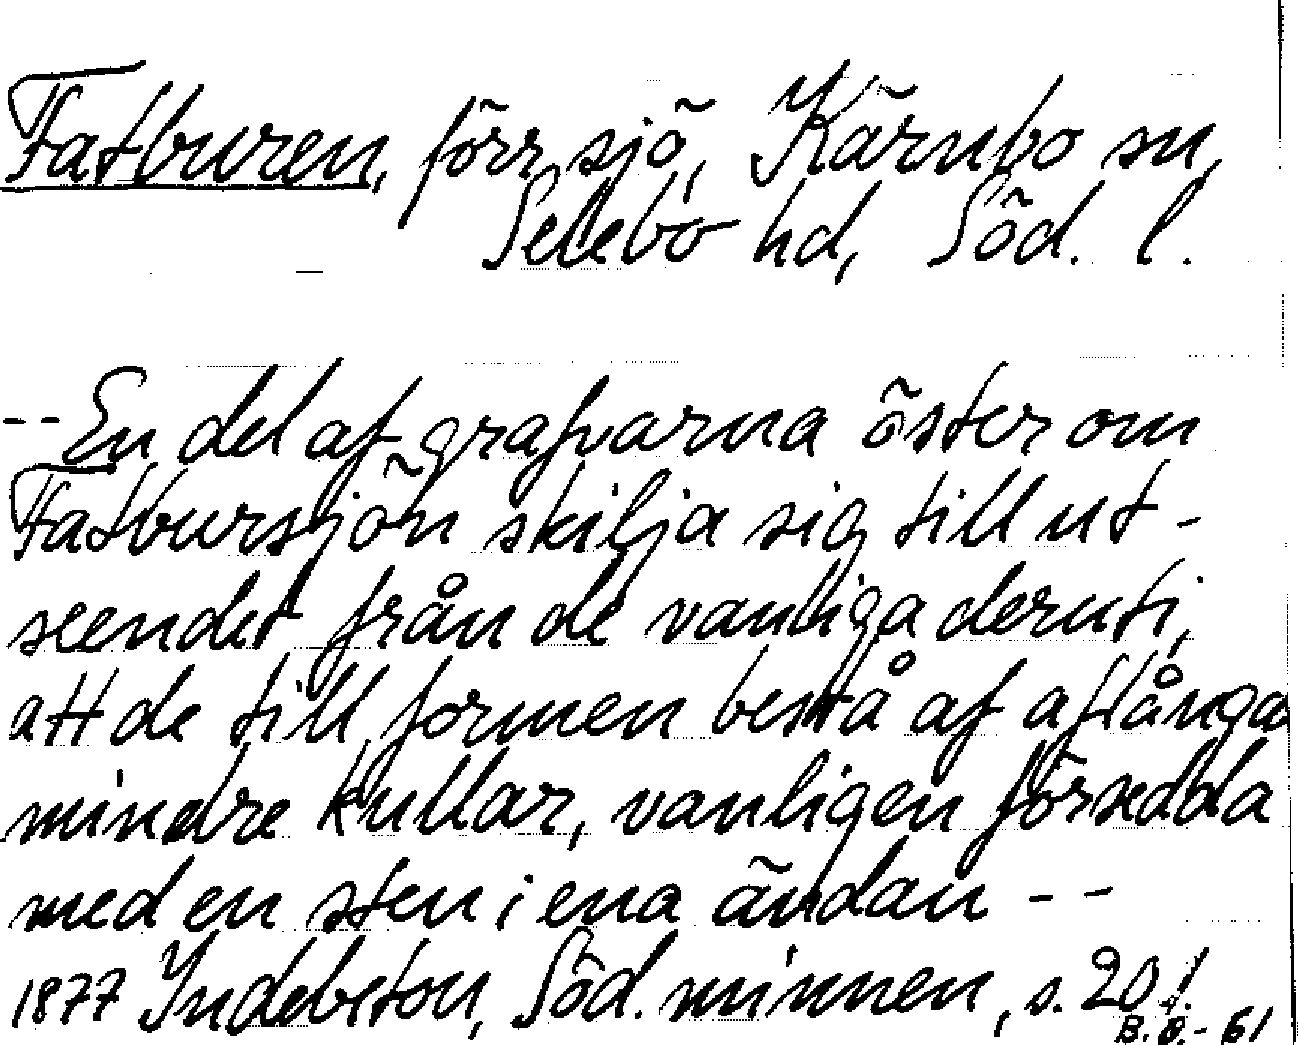 Fatburen, förr sjö, Kärnbo sn,
Selebo hd, Söd. l.
-- En del af grafvarna öster om
Fatbursjön skilja sig till ut-
seendet från de vanliga deruti,
att de till formen bestå af aflånga
mindre kullar, vanligen försedda
med en sten i ena ändan --
1877 Indebetou, Söd. minnen, s. 20
B. - 61